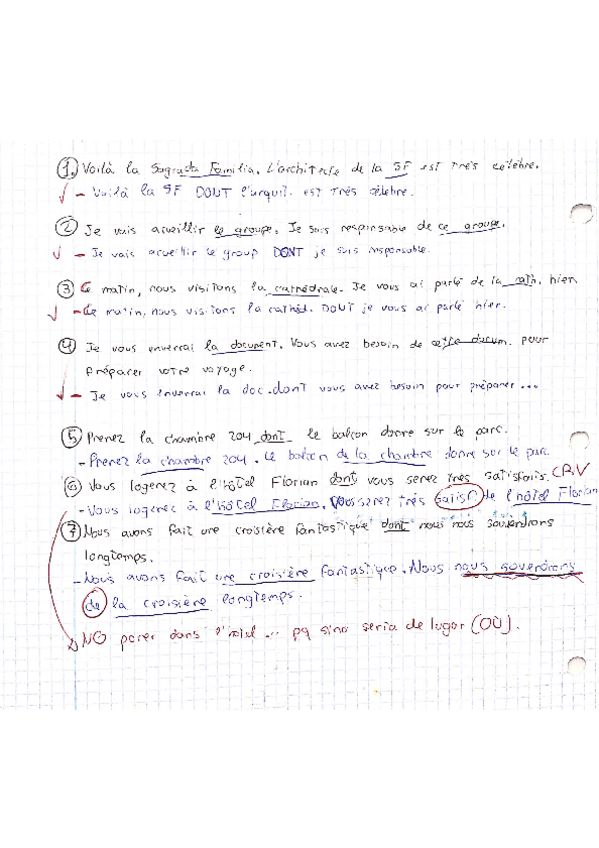 1. Voilà la Sagrada Familia. L'architecte de la SF est très célèbre.
- Voilà la SF DONT l'arquit. est très célèbre.
2 Je vais acueillir le groupe. Je suis responsable de ce groupe.
- Je vais acueillir le group DONT je suis responsable.
3 Ce matin, nous visitons la cathédrale. Je vous ai parlé de la cath. hier
- Ce matin, nous visitons la cathéd. DONT je vous ai parlé hier.
4 Je vous enverrai la document. Vous avez besoin de cette docum. pour
préparer votre voyage.
- Je vous enverrai la doc. dont vous avez besoin pour préparer ...
5 Prenez la chambre 204 dont le balcon donne sur le parc.
- Prenez la chambre 204. Le balcon de la chambre donne sur le parc
6 Vous logerez à l'hôtel Florian dont vous serez très satisfaits. CRV
- Vous logerez à l'hôtel Florian. Vous serez très satisf. de l'hôtel Florian
7 Nous avons fait une croisière fantastique dont nous nous souvendrons
longtemps.
- Nous avons fait une croisière fantastique. Nous nous souvendrons
de la croisière longtemps.
NO poner dans l'hotel ... pq sino seria de lugar (OÙ).